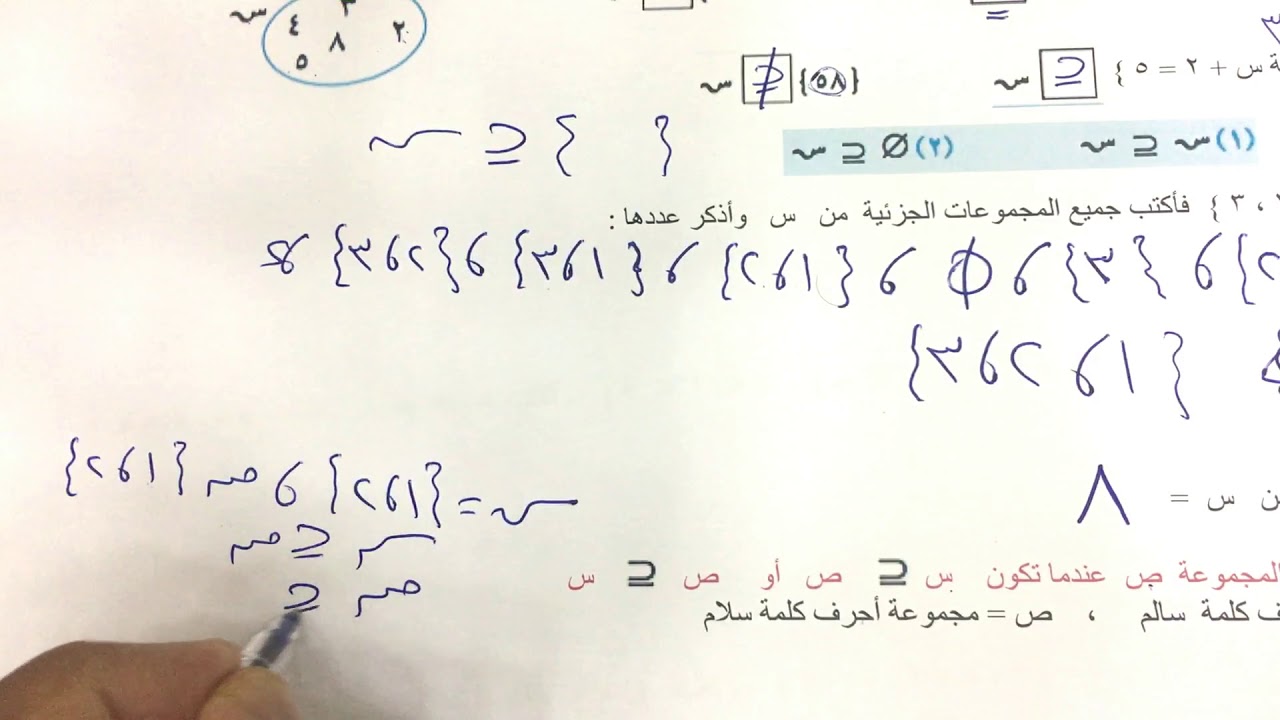 ٣
٤ ٨ ٢
٥
س
ة س + ٢ = ٥ } ⊇ س
{٥٨} ⊉ س
(١) س ⊇ س (٢) ∅ ⊇ س
{ } ⊇ س
، ٣ } فأكتب جميع المجموعات الجزئية من س وأذكر عددها :
{٣} ، ∅ ، {١،٢} ، {١،٣} ، {٢،٣} ،
{١،٢،٣}
ن س = ٨
س = {١،٢} ، ص {١،٢}
س ⊇ ص
ص ⊇
المجموعة ص عندما تكون س ⊇ ص أو ص ⊇ س
ف كلمة سالم ، ص = مجموعة أحرف كلمة سلام